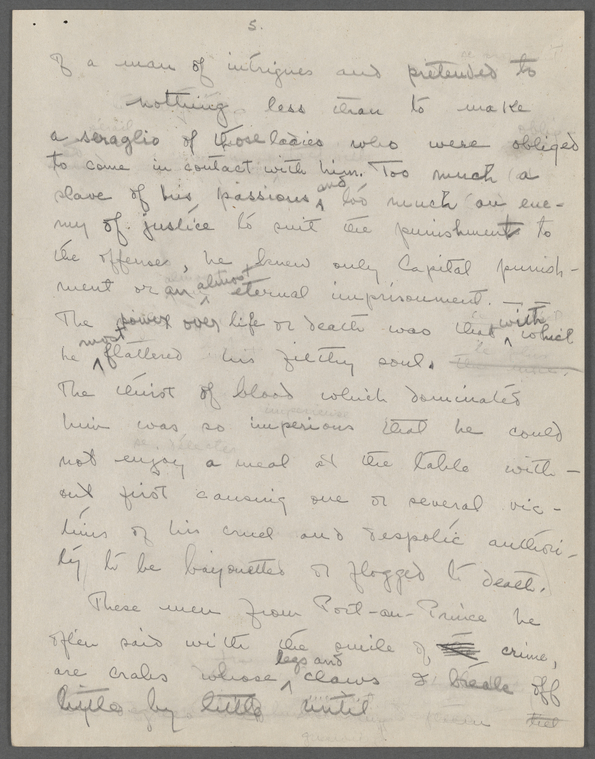 5.
of a man of intrigues and pretended to
nothing less than to make
a seraglio of those ladies who were obliged
to come in contact with him. Too much a
slave of his passions and too much an ene-
my of justice to suit the punishment to
the offense, he knew only Capital punish-
ment or an almost eternal imprisonment. —
The power over life or death was that with which
he most flattered his filthy soul.
The thirst of blood which dominated
him was so imperious that he could
not enjoy a meal at the table with-
out first causing one or several vic-
tims of his cruel and despotic authori-
ty to be bayonetted or flogged to death.
These men from Port-au-Prince he
often said with the smile of crime,
are crabs whose legs and claws I break off
little by little until